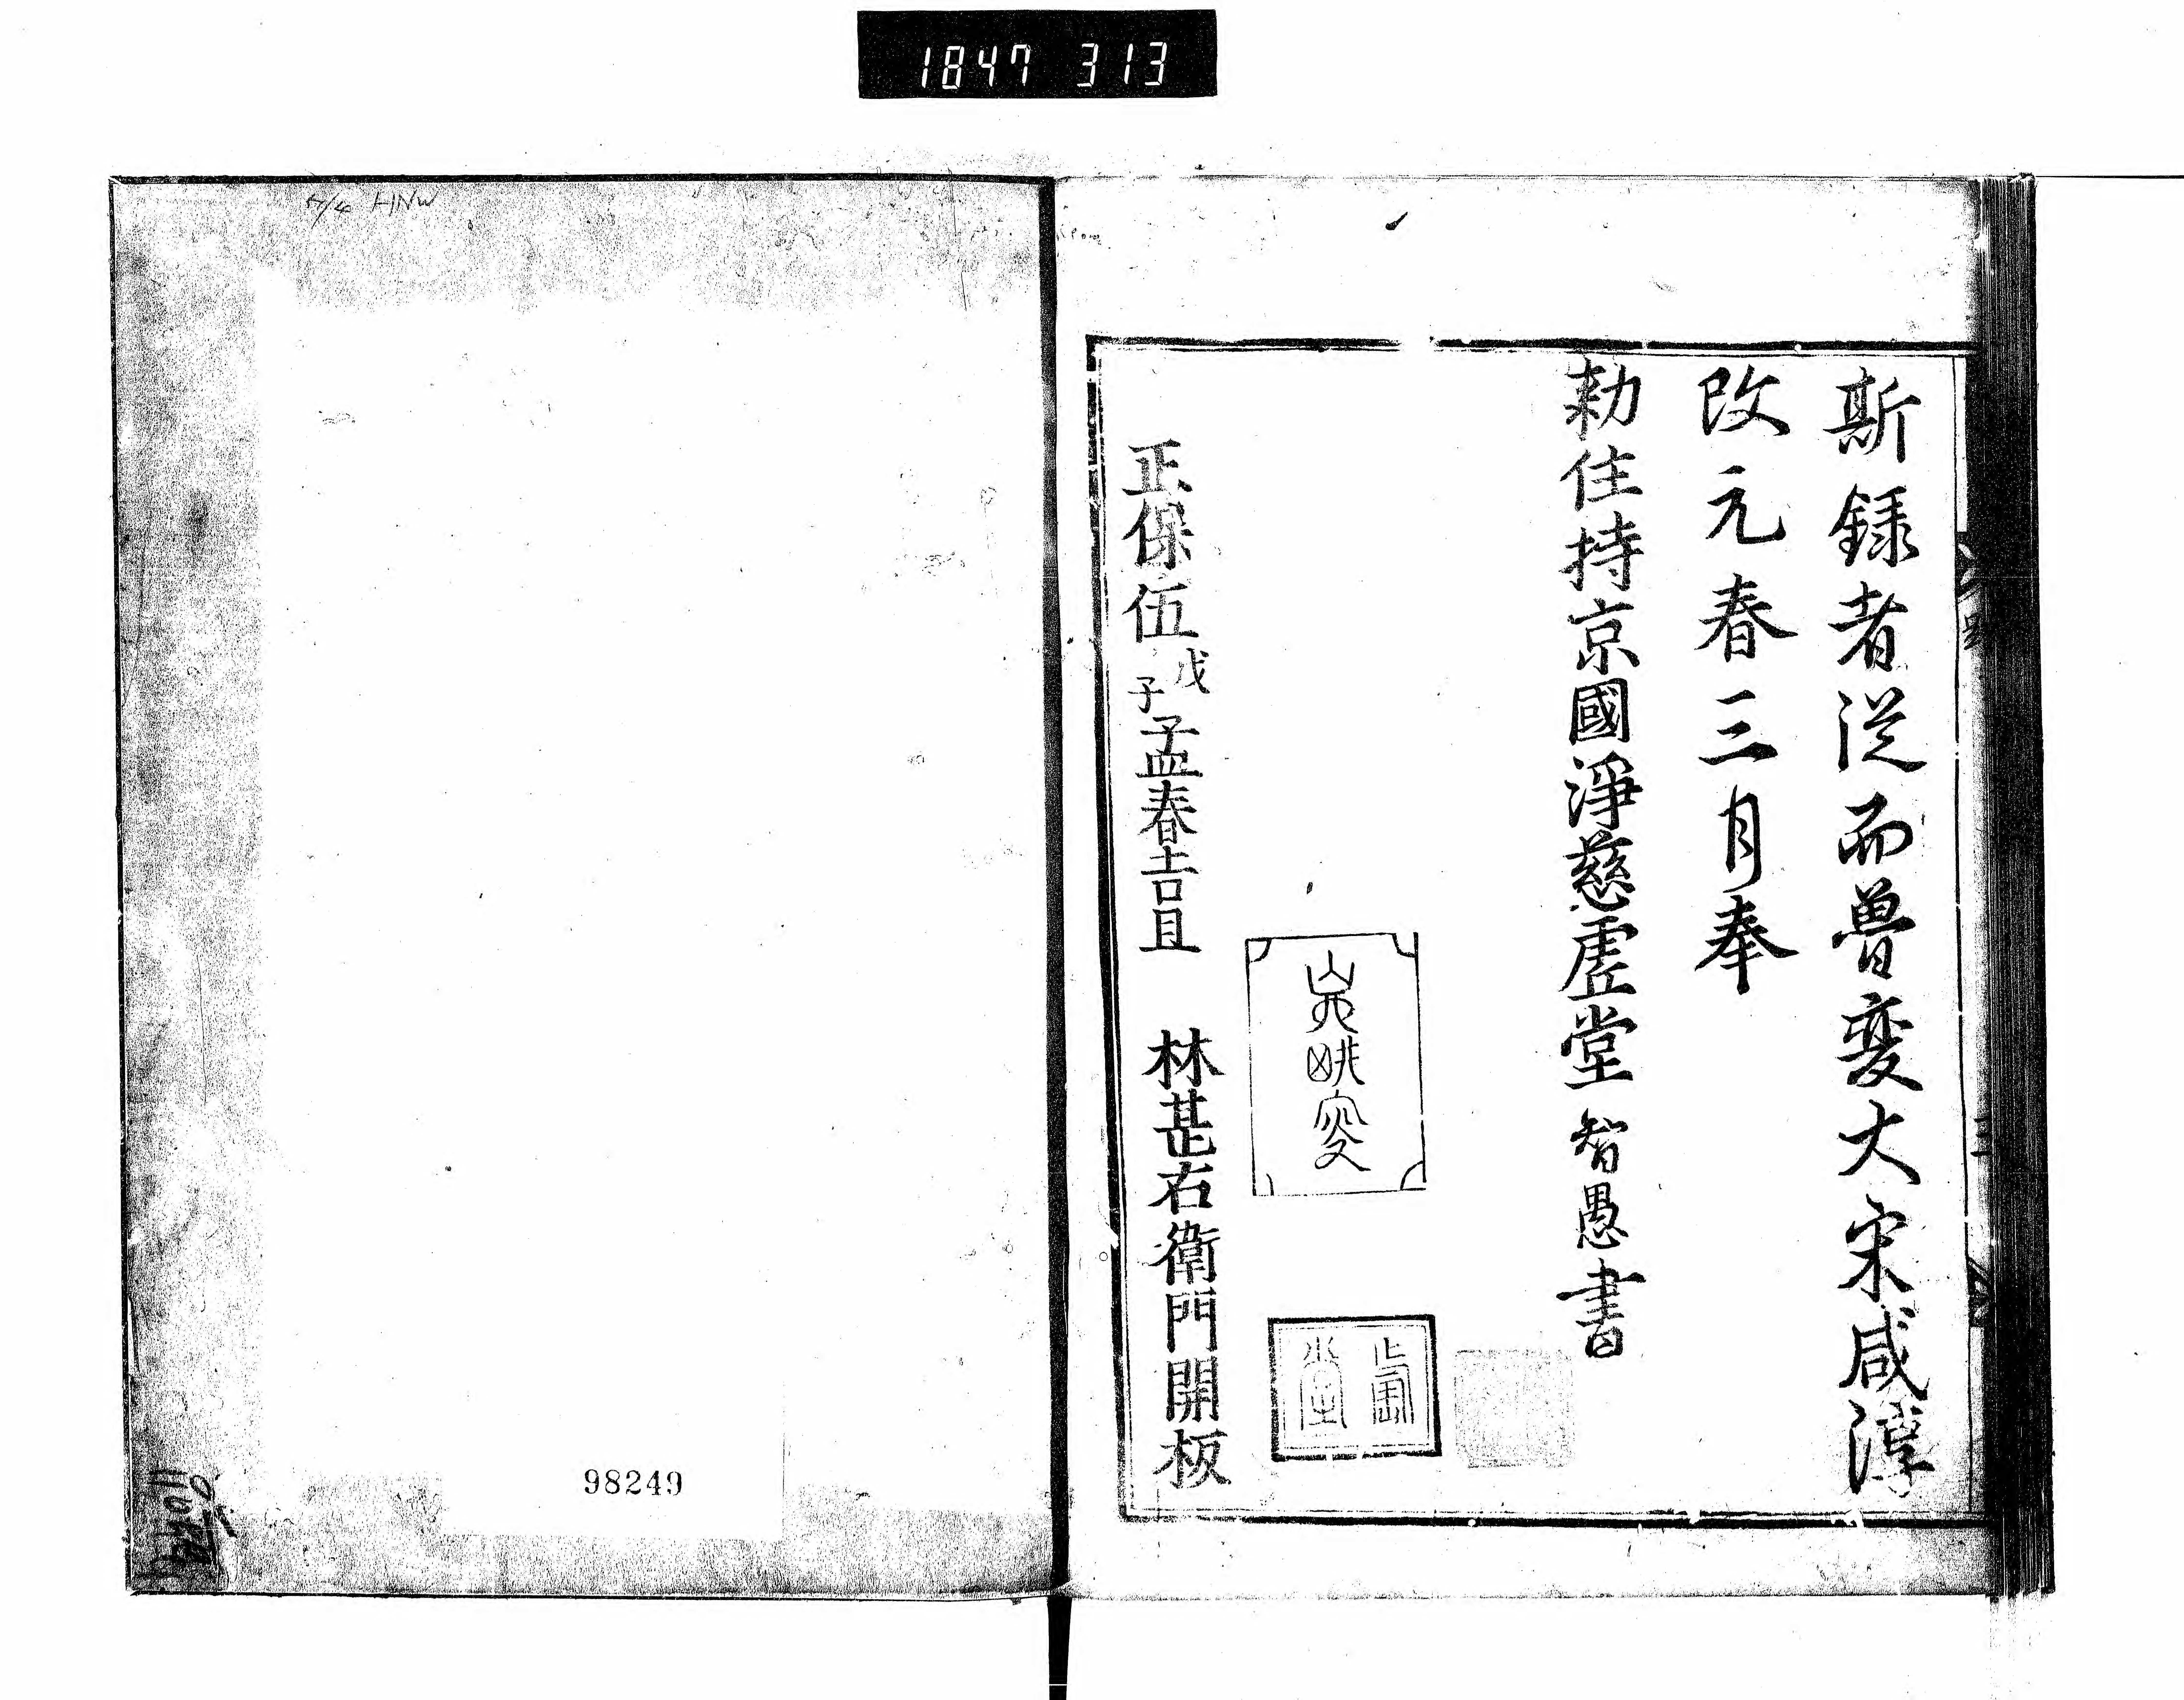 1847 313
斯録者從而曽変大宋咸淳
改元春三月奉
勅住持京國淨慈虚堂智愚書
虚堂
正保伍戊子孟春吉旦 林甚右衛門開板
HNW
98249